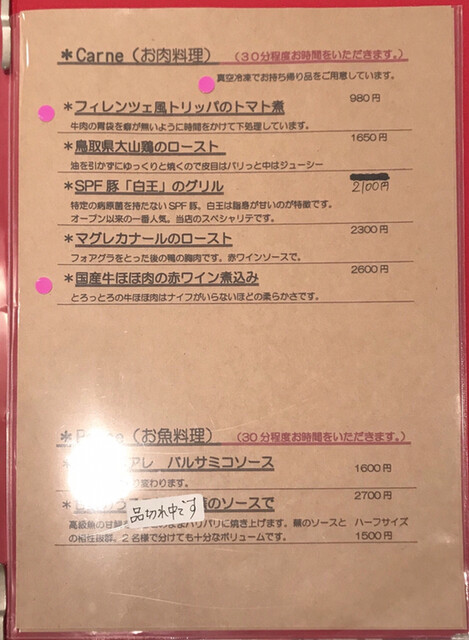 ＊Carne（お肉料理）　（30分程度お時間をいただきます。）
真空冷凍でお持ち帰り品をご用意しています。
＊フィレンツェ風トリッパのトマト煮　980円
牛肉の胃袋を癖が無いように時間をかけて下処理しています。
＊鳥取県大山鶏のロースト　1650円
油を引かずにゆっくりと焼くので皮目はパリっと中はジューシー
＊SPF豚「白王」のグリル　2100円
特定の病原菌を持たないSPF豚。白王は脂身が甘いのが特徴です。
オープン以来の一番人気。当店のスペシャリテです。
＊マグレカナールのロースト　2300円
フォアグラをとった後の鴨の胸肉です。赤ワインソースで。
＊国産牛ほほ肉の赤ワイン煮込み　2600円
とろっとろの牛ほほ肉はナイフがいらないほどの柔らかさです。
＊（お魚料理）　（30分程度お時間をいただきます。）
アレ　バルサミコソース　1600円
変わります。
＊のソースで　2700円
品切れ中です
高級魚の甘鯛　パリパリに焼き上げます。鯛のソースと　ハーフサイズ
の相性抜群。2名様で分けても十分なボリュームです。　1500円